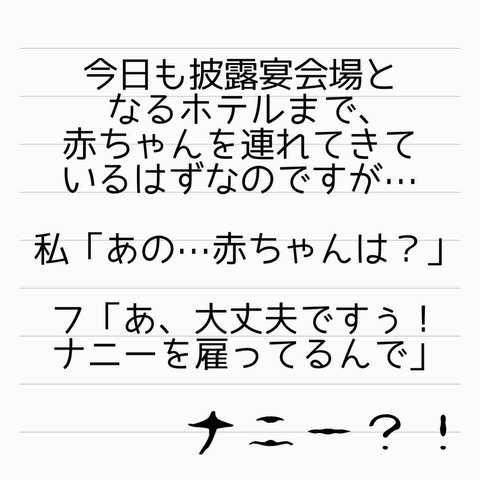 今日も披露宴会場と
なるホテルまで、
赤ちゃんを連れてきて
いるはずなのですが…
私「あの…赤ちゃんは？」
フ「あ、大丈夫ですぅ！
ナニーを雇ってるんで」
ナニー？！